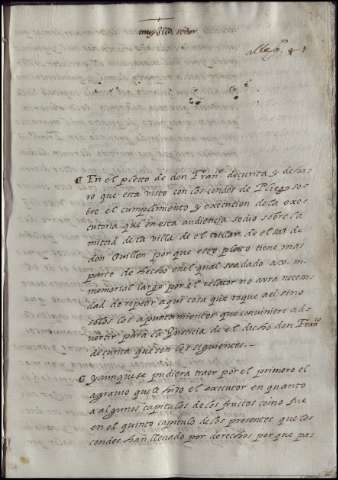 muy Illtre señor
En el pleito de don Franco de çurita y de ha
ro que esta visto con los condes de Pliego so
bre el cumplimiento y execucion de la exe
cutoria que en esta audiencia se dio sobre la
mitad de la villa de el de
don Guillen por que este pleito tiene mas
parte de hecho en el qual se a dado a v. s.
memorial largo por el relator no avra necesi
dad de repetir aqui cosa que toque a el sino
solos los apuntamientos que conviniere ad
vertir para la justicia de el dicho don Franco
de çurita que son los siguientes.
Y aunque se pudiera traer por el primero el
agravio que le hizo el executor en quanto
a algunos capitulos de los fructos como fue
en el quinto capitulo de los presentes que los
condes han llevado por derechos por que pas